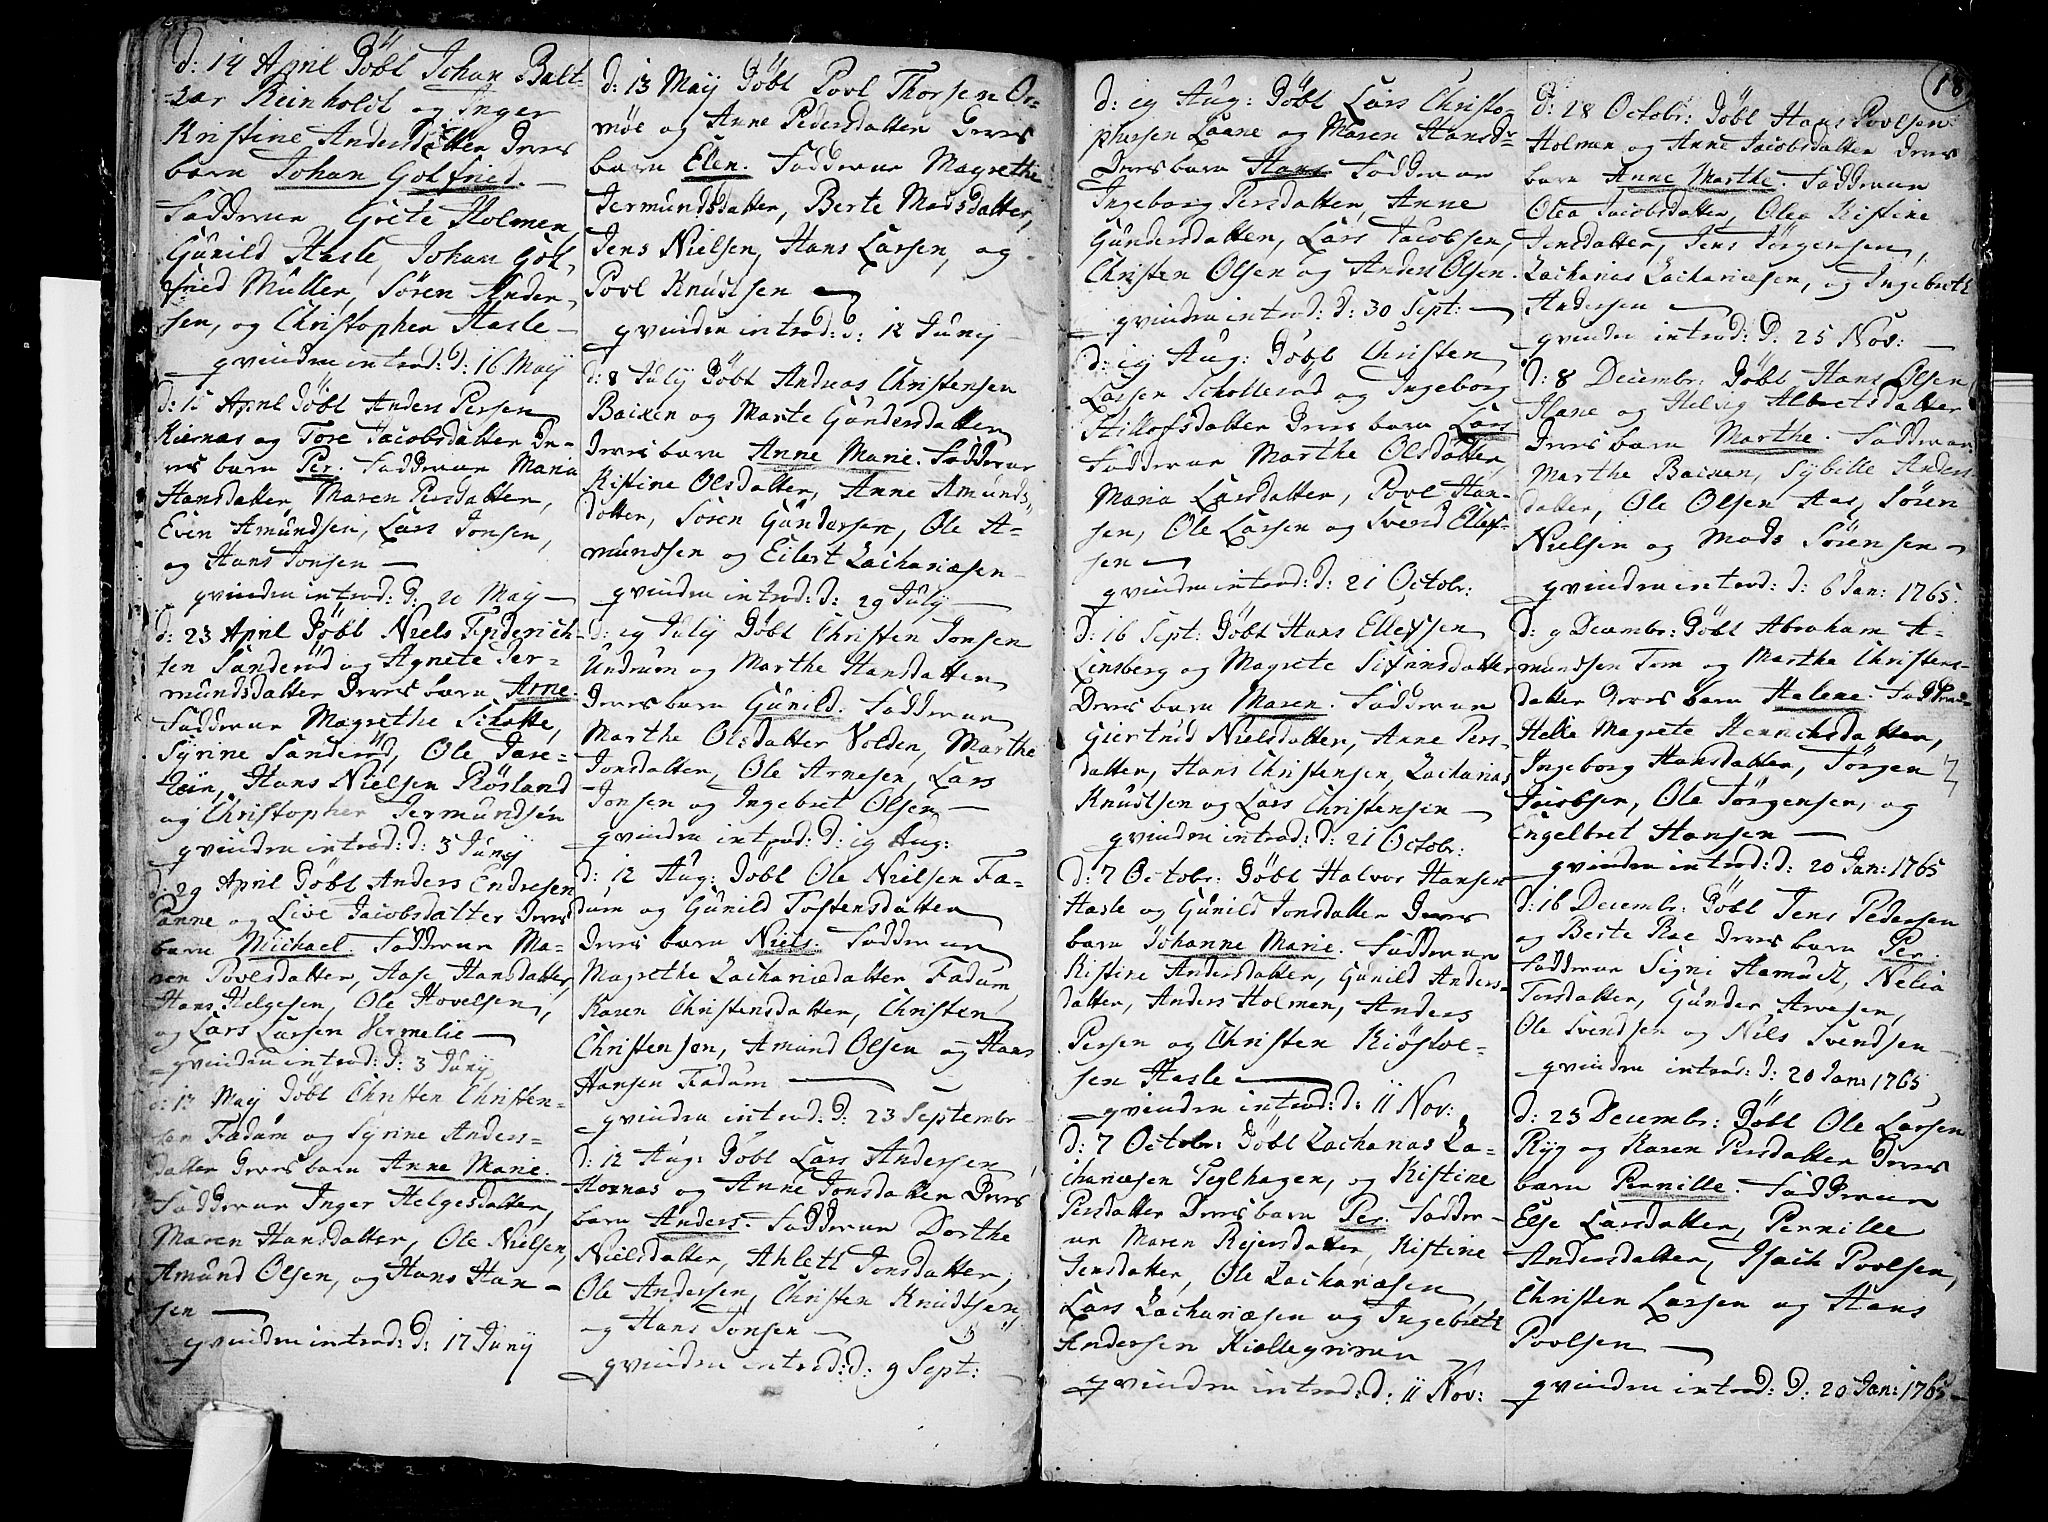 d: 14 April Döbt Johan Balt-
zar Reinholdt og Inger
Kristine Andersdatter Deres
barn Johan Gotfried. —
Fadderne Grete Holmen,
Gunild Hasle, Johan Got-
fried Müller, Sören Ander-
sen, og Christopher Hasle —
qvinden introd: d: 16 Maij
d: 15 April Döbt Anders Persen
Kiernæs og Tore Jacobsdatter De-
res barn Per. Fadderne Maria
Hansdatter, Maren Persdatter,
Even Amundsen, Lars Jonsen,
og Hans Jonsen —
qvinden introd: d: 20 Maij —
d: 23 April Döbt Niels Friderich-
sen Sanderöd og Agnete Jer-
mundsdatter Deres barn Arne.
Fadderne Magrethe Schotte,
Syrine Sanderöd, Ole Jare-
teien, Hans Nielsen Rösland
og Christopher Jermundsen
qvinden introd: d: 3 Junij
d: 29 April Döbt Anders Endresen
Panne og Live Jacobsdatter Deres
barn Michael. Fadderne Ma-
ren Povlsdatter, Aase Hansdatter,
Hans Helgesen, Ole Hovelsen,
og Lars Larsen Vermelie —
qvinden introd: d: 3 Junij
d: 13 Maij Döbt Christen Christen-
sen Fadum og Syrine Anders-
datter Deres barn Anne Marie.
Fadderne Inger Helgesdatter,
Maren Hansdatter, Ole Nielsen,
Amund Olsen, og Hans Han-
sen —
qvinden introd: d: 17 Junij
d: 13 Maij Döbt Povl Thorsen Or-
möe og Anne Pedersdatter Deres
barn Elen. Fadderne Magrethe
Jermundsdatter, Berte Madsdatter,
Jens Nielsen, Hans Larsen, og
Povl Knudtsen —
qvinden introd: d: 12 Junij
d: 8 Julij Döbt Andreas Christensen
Baixen og Marte Gundersdatter
Deres barn Anne Marie. Fadderne
Kistine Olsdatter, Anne Amunds-
datter, Sören Gundersen, Ole A-
mundsen og Eilert Zachariæsen
qvinden introd: d: 29 Julij —
d: 19 Julij Döbt Christen Jonsen
Undrum og Marthe Hansdatter
Deres barn Gunild. Fadderne
Marthe Olsdatter Volden, Marthe
Jonsdatter, Ole Arnesen, Lars
Jonsen og Ingebret Olsen —
qvinden introd: d: 19 Aug:
d: 12 Aug: Döbt Ole Nielsen Fa-
dum og Gunild Tostensdatter
Deres barn Niels. Fadderne
Magrethe Zachariædatter Fadum,
Karen Christensdatter, Christen
Christensen, Amund Olsen og Hans
Hansen Fadum —
qvinden introd: d: 23 Septembr
d: 12 Aug: Döbt Lars Andersen
Hornæs og Anne Jonsdatter Deres
barn Anders. Fadderne Dorthe
Nielsdatter, Ahlett Jonsdatter,
Ole Andersen, Christen Knudtsen,
og Hans Jonsen —
qvinden introd: d: 9 Sept: —
18
d: 19 Aug: Döbt Lars Christo-
phersen Laane og Maren Hansdr
Deres barn Hans Fadderne
Ingeborg Persdatter, Anne
Gundersdatter, Lars Jacobsen,
Christen Olsen og Anders Olsen.
qvinden introd: d: 30 Sept: —
d: 19 Aug: Döbt Christen
Larsen Scholleröd og Ingeborg
Hillofsdatter Deres barn Lars
Fadderne Marthe Olsdatter,
Maria Larsdatter, Povl Han-
sen, Ole Larsen og Svend Ellef-
sen —
qvinden introd: d: 21 Octobr:
d: 16 Sept: Döbt Hans Ellefsen
Linsberg og Magrete Sifrinsdatter
Deres barn Maren. Fadderne
Giertrud Nielsdatter, Anne Pers-
datter, Hans Christensen, Zacharias
Knudtsen og Lars Christensen —
qvinden introd: d: 21 Octobr:
d: 7 Octobr: Döbt Halvor Hansen
Hasle og Gunild Jonsdatter Deres
barn Johanne Marie. Fadderne
Kistine Andersdatter, Gunild Anders-
datter, Anders Holmen, Anders
Persen og Christen Kiöstol-
sen Hasle —
qvinden introd: d: 11 Nov:
d: 7 Octobr: Döbt Zacharias Za-
chariæsen Teglhagen, og Kistine
Persdatter Deres barn Per. Fadder-
ne Maren Reiersdatter, Kistine
Jensdatter, Ole Zachariæsen,
Lars Zachariæsen og Ingebreth
Andersen Kiellegriven
qvinden introd: d: 11 Nov:
d: 28 Octobr: Döbt Hans Povlsen
Holmen og Anne Jacobsdatter Deres
barn Anne Marthe. Fadderne
Olea Jacobsdatter, Olea Kistine
Jensdatter, Jens Jörgensen,
Zacharias Zachariæsen, og Ingebreth
Andersen —
qvinden introd: d. 25 Nov: —
d: 8 Decembr: Döbt Hans Olsen
Hane og Helvig Albretsdatter
Deres barn Marthe. Fadderne
Marthe Baixen, Sybille Anders-
datter, Ole Olsen Aas, Sören
Nielsen og Mads Sörensen —
qvinden introd: d: 6 Jan: 1765.
d: 9 Decembr: Döbt Abraham A-
mundsen Tem og Marthe Christens-
datter Deres barn Helene. Fadderne
Helie Magrete Henrichsdatter,
Ingeborg Hansdatter, Jörgen
Jacobsen, Ole Jörgensen, og
Engelbret Hansen —
qvinden introd: d: 20 Jan: 1765
d: 16 Decembr: Döbt Jens Pedersen
og Berte Roe Deres barn Per.
Fadderne Signi Aamodt, Nelia
Torsdatter, Gunder Arvesen,
Ole Svendsen og Nils Svendsen
qvinden introd: d: 20 Jan: 1765
d: 23 Decembr: Döbt Ole Larsen
Ryg og Karen Persdatter Deres
barn Pernille. Fadderne
Else Larsdatter, Pernille
Andersdatter, Isach Povlsen,
Christen Larsen og Hans
Povlsen —
qvinden introd: d: 20 Jan: 1765 —